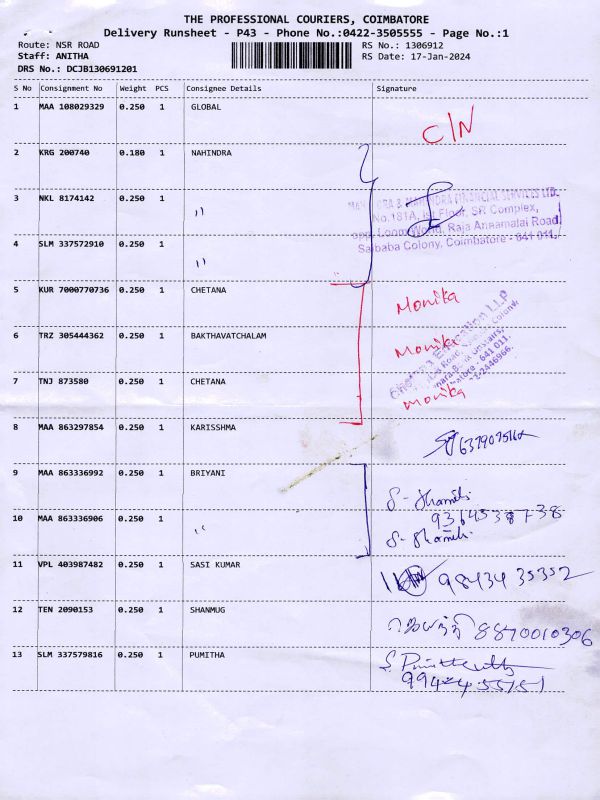 THE PROFESSIONAL COURIERS, COIMBATORE
Delivery Runsheet - P43 - Phone No.:0422-3505555 - Page No.:1
Route: NSR ROAD RS No.: 1306912
Staff: ANITHA RS Date: 17-Jan-2024
DRS No.: DCJB130691201
S No Consignment No Weight PCS Consignee Details Signature
1 MAA 108029329 0.250 1 GLOBAL
C/N
2 KRG 200740 0.180 1 NAHINDRA
3 NKL 8174142 0.250 1 "
MAHINDRA & MAHINDRA FINANCIAL SERVICES LTD.
No.181A, Ist Floor, SR Complex,
Opp. Loom World, Raja Annamalai Road,
Saibaba Colony, Coimbatore - 641 011.
4 SLM 337572910 0.250 1 "
5 KUR 7000770736 0.250 1 CHETANA Monika
6 TRZ 305444362 0.250 1 BAKTHAVATCHALAM Monika
7 TNJ 873580 0.250 1 CHETANA Monika
Chetana Education LLP
641 011.
2446966.
8 MAA 863297854 0.250 1 KARISSHMA
9 MAA 863336992 0.250 1 BRIYANI
9364538738
10 MAA 863336906 0.250 1 "
11 VPL 403987482 0.250 1 SASI KUMAR 98434 35352
12 TEN 2090153 0.250 1 SHANMUG 8870010306
13 SLM 337579816 0.250 1 PUMITHA